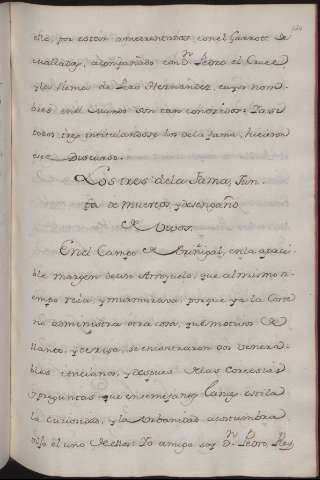 ello, por estàr amecrentados con el Garrote de
Mallada, acompañado con Dn. Pedro el Cruel
y la flema de Pero Hernandez, cuyos nom-
bres en el Mundo son tan conocidos: Pues
todos tres intitulandose los de la fama, hicieron
este Discurso.
Los tres de la Fama, Jun-
ta de muertos, y desengaño
de Vivos.
En el Campo de Brañigal, en la apaci-
ble margen de un Arroyuelo, que al mismo ti-
empo reia, y murmuraba porque ya la Corte
no administra otra cosa, que motivos de
llanto, y de risa, se encontraron dos Venera-
bles ancianos, y despues de las Cortesias
y preguntas que en semejantes lances estila
la curiosidad, y la Urbanidad acostumbra
dijo el uno de ellos: Yo amigo soy Dn. Pedro, Rey